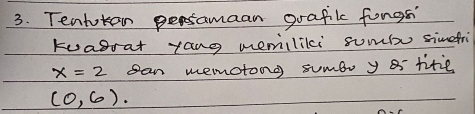 3. Tentukan persamaan grafik fungsi
kuadrat yang memiliki sumbu simetri
x = 2 dan memotong sumbu y di titik
(0,6).